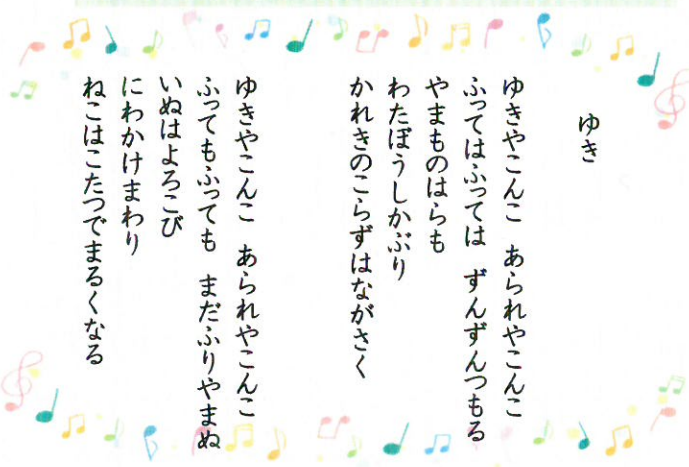 ゆき
ゆきやこんこ　あられやこんこ
ふってはふっては　ずんずんつもる
やまものはらも
わたぼうしかぶり
かれきのこらずはながさく
ゆきやこんこ　あられやこんこ
ふってもふっても　まだふりやまぬ
いぬはよろこび
にわかけまわり
ねこはこたつでまるくなる